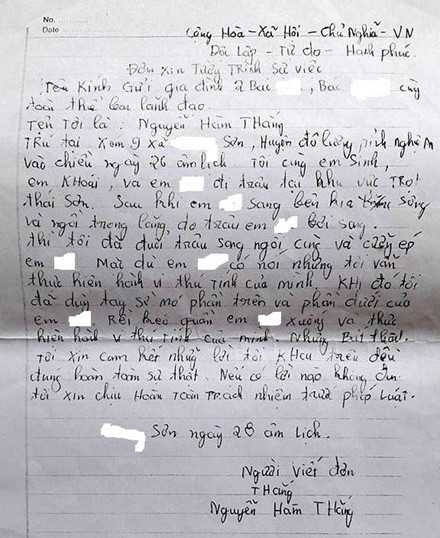 No.
Date
Cộng Hòa - Xã Hội - Chủ Nghĩa - VN
Độc Lập - Tự do - Hạnh phúc
Đơn xin Tường Trình Sự việc
Tên Kính Gửi gia đình 2 Bác , Bác cùng
toàn thể ban lãnh đạo
Tên Tôi là: Nguyễn Hàm Thắng
Trú tại Xóm 9 Xã Sơn, Huyện đô lương, tỉnh Nghệ An
vào chiều ngày 26 âm lịch Tôi cùng em Sinh,
em Khoái, và em đi trâu tại khu vực Trọt
thái Sơn. Sau khi em sang bên kia sông
và ngồi trong lăng, do trâu em bơi sang.
thì tôi đã đuổi trâu sang ngồi cùng và cưỡng ép
em Mặc dù em có nói nhưng tôi vẫn
thực hiện hành vi thú tính của mình. Khi đó tôi
đã dùng tay sờ mó phần trên và phần dưới của
em Rồi kéo quần em Xuống và thực
hiện hành vi thú tính của mình. Nhưng Bất thành.
Tôi xin cam kết những lời tôi Khai trên đều
đúng hoàn toàn sự thật. Nếu có lời nào không đúng
tôi xin chịu Hoàn Toàn Trách nhiệm trước pháp luật.
Sơn ngày 28 âm lịch.
Người viết đơn
Thắng
Nguyễn Hàm Thắng